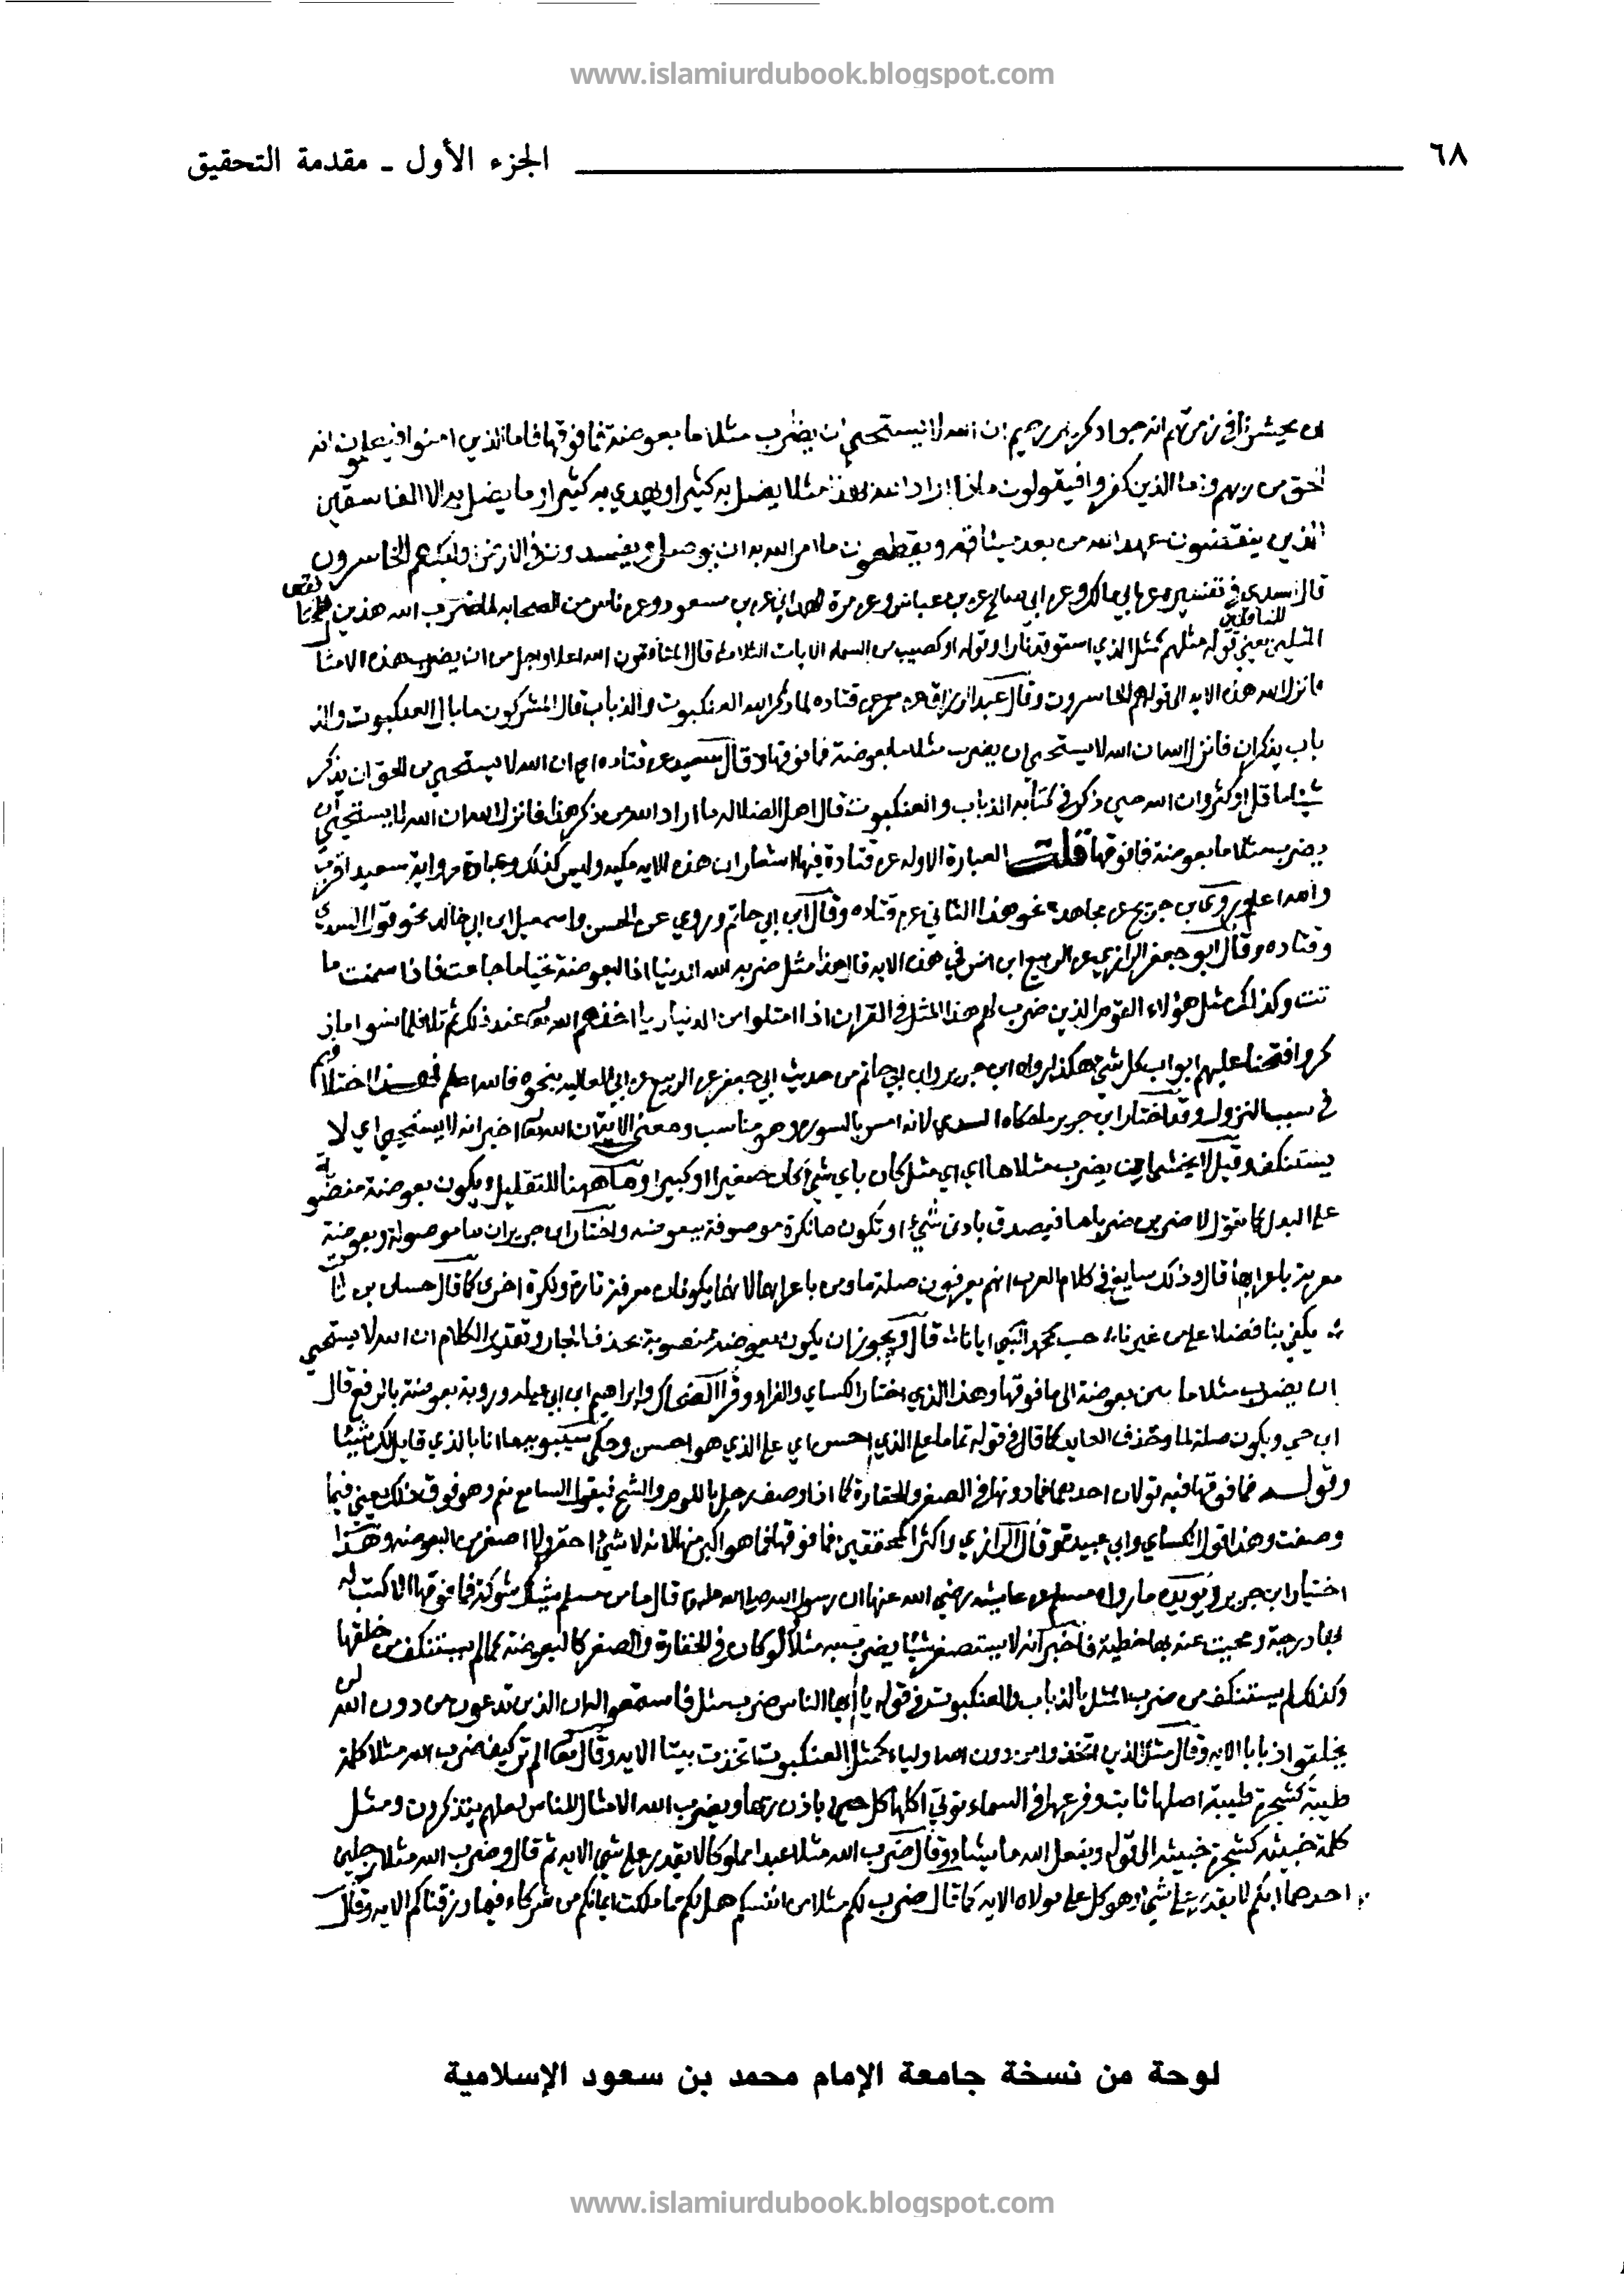 www.islamiurdubook.blogspot.com
٦٨ الجزء الأول ـ مقدمة التحقيق
ان يحشرنا في زمرتهم انه جواد كريم رحيم ان الله لا يستحيي ان يضرب مثلا ما بعوضة فما فوقها فاما الذين امنوا فيعلمون انه
الحق من ربهم واما الذين كفروا فيقولون ماذا اراد الله بهذا مثلا يضل به كثيرا ويهدي به كثيرا وما يضل به الا الفاسقين
الذين ينقضون عهد الله من بعد ميثاقه ويقطعون ما امر الله به ان يوصل ويفسدون في الارض اولئك هم الخاسرون
قال السدي في تفسيره عن ابي مالك وعن ابي صالح عن بن عباس وعن مرة الهمداني عن بن مسعود وعن ناس من الصحابه لما ضرب الله هذين
للمنافقين
المثلين يعني قوله مثلهم كمثل الذي استوقد نارا وقوله او كصيب من السماء الايات الثلاث قال المنافقون الله اعلا واجل من ان يضرب هذه الامثا
فانزل الله هذه الايه الى قوله هم الخاسرون وقال عبد الرزاق عن معمر عن قتاده لما ذكر الله العنكبوت والذباب قال المشركون ما بال العنكبوت والذ
باب يذكران فانزل الله ان الله لا يستحيي ان يضرب مثلا ما بعوضة فما فوقها وقال سعيد عن قتاده اي ان الله لا يستحيي من الحق ان يذكر
شيئا ما قل او كثر وان الله حين ذكر في كتابه الذباب والعنكبوت قال اهل الضلاله ما اراد الله من ذكر هذا فانزل الله ان الله لا يستحيي ان
يضرب مثلا ما بعوضة فما فوقها قلت العبارة الاوله عن قتادة فيها اشعار ان هذه الايه مكيه وليس كذلك وعبارة رواية سعيد اقرب
والله اعلم وروى بن جريج عن مجاهد نحو هذا الثاني عن قتاده وقال ابن ابي حاتم وروي عن الحسن واسمعيل ابن ابي خالد نحو قول السدي
وقتاده وقال ابو جعفر الرازي عن الربيع ابن انس في هذه الايه قال هذا مثل ضربه الله للدنيا اذ البعوضة تحيا ما جاعت فاذا سمنت ما
تت وكذلك مثل هؤلاء القوم الذين ضرب لهم هذا المثل في القران اذا امتلوا من الدنيا ريا اخذهم الله عند ذلك ثم تلا فلما نسوا ما ذ
كروا فتحنا عليهم ابواب كل شي هكذا رواه ابن جرير وابن ابي حاتم من حديث ابي جعفر عن الربيع عن ابي العاليه بنحوه فالله اعلم فهذا اختلافهم
في سبب النزول وقد اختار ابن جرير ما حكاه السدي لانه امس بالسوره وهو مناسب ومعنى الاية ان الله تعالى اخبر انه لا يستحيي اي لا
يستنكف وقيل لا يخشى ان يضرب مثلا ما اي اي مثل كان باي شي كان صغيرا او كبيرا وما ههنا للتقليل ويكون بعوضة منصوبة
على البدل كما تقول لاضربن ضربا ما فيصدق بادنى شيء او تكون ما نكرة موصوفة ببعوضه واختار ابن جرير ان ما موصولة وبعوضة
معربة باعرابها قال وذلك سايغ في كلام العرب انهم يعربون صلة ما ومن باعرابهما لانهما يكونان معرفة تارة ونكرة اخرى كما قال حسان بن ثا
يكفي بنا فضلا على من غيرنا حب محمد النبي ايانا قال ويجوز ان يكون بعوضة منصوبة بحذف الجار وتقدير الكلام ان الله لا يستحيي
ان يضرب مثلا ما بين بعوضة الى ما فوقها وهذا الذي اختاره الكساي والفراء وقرا الضحاك وابراهيم ابن ابي عبله وروبة بعوضة بالرفع قال
ابن جني ويكون صلة لما وحذف العايد كما قال في قوله تماما على الذي احسن اي على الذي هو احسن وحكى سيبويه ما انا بالذي قايل لك شيئا
وقوله فما فوقها فيه قولان احدهما فما دونها في الصغر والحقارة كما اذا وصف رجل باللوم والشح فيقول السامع نعم وهو فوق ذلك يعني فيما
وصفت وهذا قول الكساي وابي عبيد قال الرازي واكثر المحققين فما فوقها لما هو اكبر منها لانه لا شيء احقر ولا اصغر من البعوضه وهذا
اختيار ابن جرير ويويده ما رواه مسلم عن عايشه رضي الله عنها ان رسول الله صلى الله عليه قال ما من مسلم يشاك شوكة فما فوقها الا كتب له
بها درجة ومحيت عنه بها خطية فاخبر انه لا يستصغر شيئا يضرب به مثلا ولو كان في الحقارة والصغر كالبعوضة كما لم يستنكف من خلقها
وكذلك لم يستنكف من ضرب المثل بالذباب والعنكبوت في قوله يا ايها الناس ضرب مثل فاستمعوا له ان الذين تدعون من دون الله لن
يخلقوا ذبابا الايه وقال مثل الذين اتخذوا من دون الله اولياء كمثل العنكبوت اتخذت بيتا الايه وقال الم تر كيف ضرب الله مثلا كلمة
طيبة كشجرة طيبة اصلها ثابت وفرعها في السماء توتي اكلها كل حين باذن ربها ويضرب الله الامثال للناس لعلهم يتذكرون ومثل
كلمة خبيثة كشجرة خبيثه الى قوله ويفعل الله ما يشاء وقال ضرب الله مثلا عبدا مملوكا لا يقدر على شي الايه ثم قال وضرب الله مثلا رجلين
احدهما ابكم لا يقدر على شي وهو كل على مولاه الايه كما قال ضرب لكم مثلا من انفسكم هل لكم مما ملكت ايمانكم من شركاء فيما رزقناكم الايه وقال
لوحة من نسخة جامعة الإمام محمد بن سعود الإسلامية
www.islamiurdubook.blogspot.com